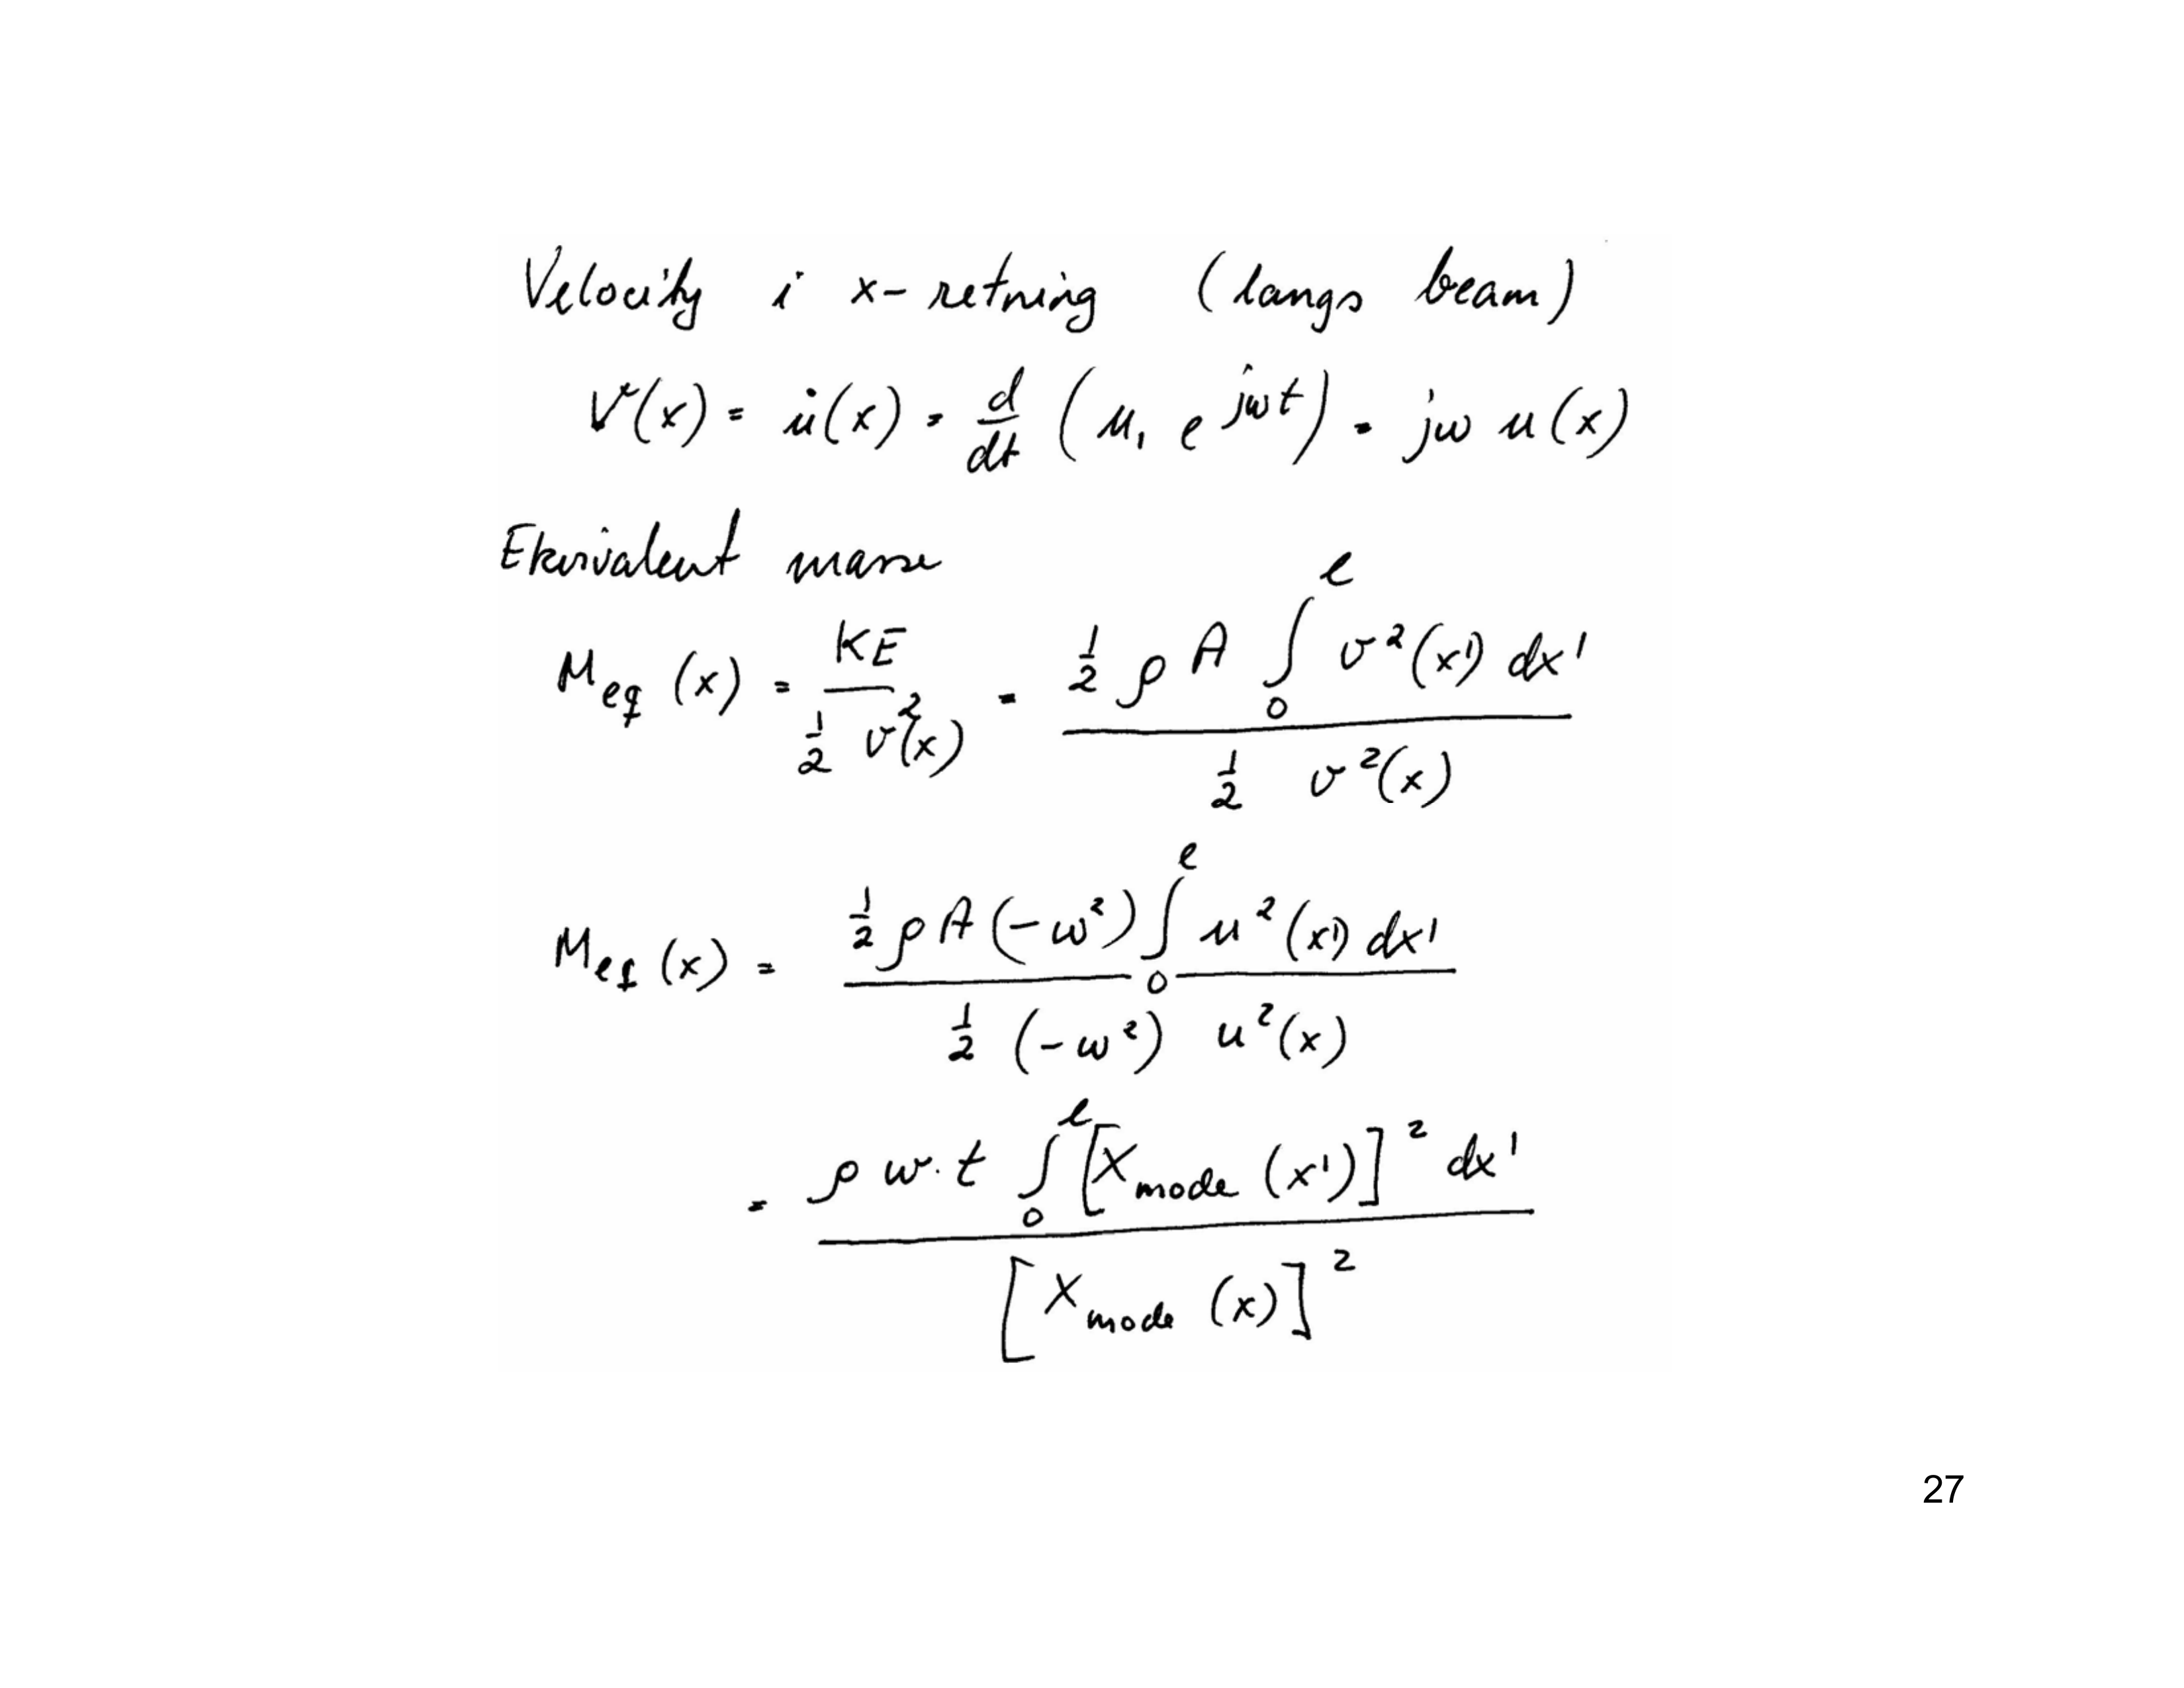 Velocity i x-retning (langs beam)
v(x) = u̇(x) = d/dt (u₁ e^{jωt}) = jω u(x)
Ekvivalent masse
M_eq (x) = KE / (½ v²(x)) = ½ ρ A ∫₀^ℓ v²(x') dx' / (½ v²(x))
M_eq (x) = ½ ρ A (-ω²) ∫₀^ℓ u²(x') dx' / (½ (-ω²) u²(x))
= ρ w·t ∫₀^ℓ [X_mode (x')]² dx' / [X_mode (x)]²
27